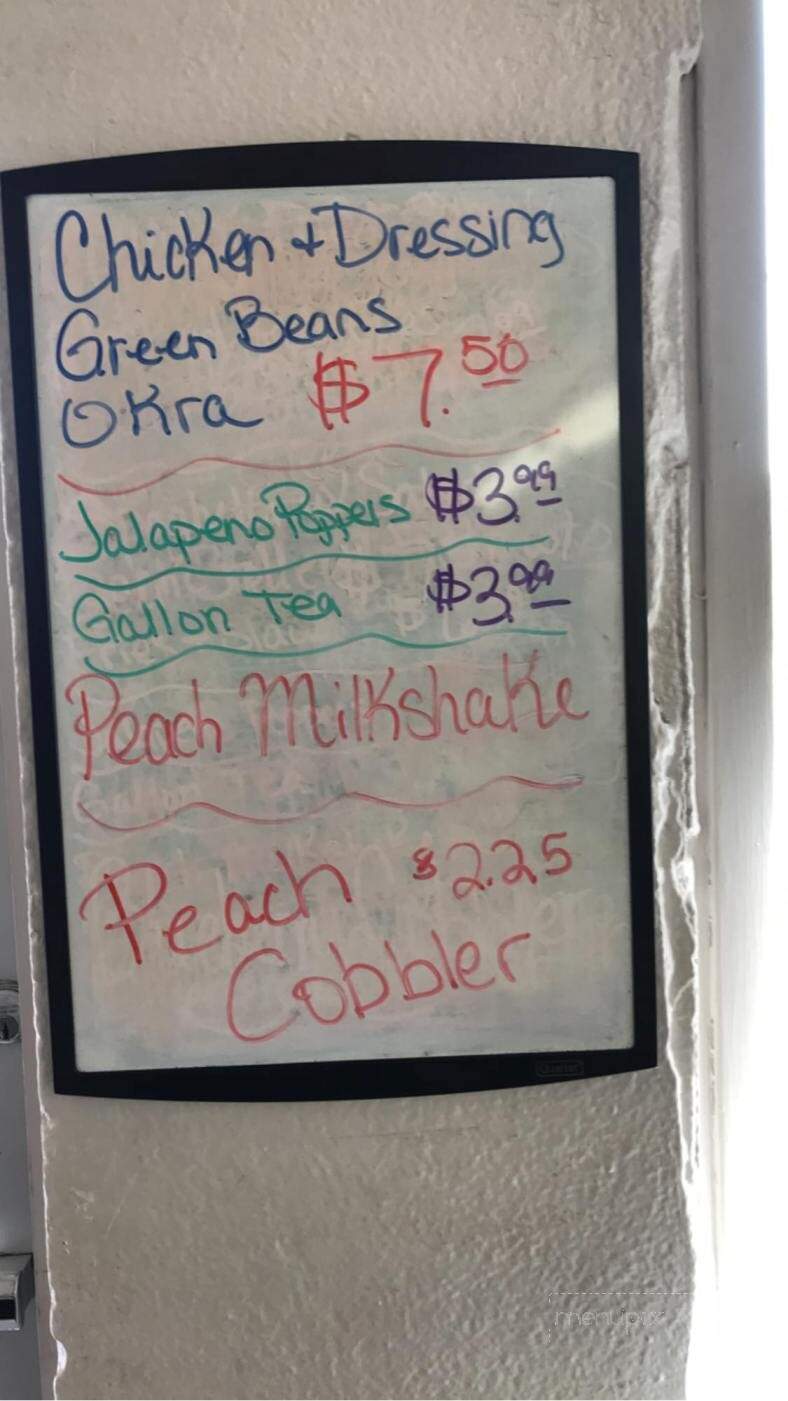 Chicken + Dressing
Green Beans
Okra $7.50
Jalapeno Poppers $3.99
Gallon Tea $3.99
Peach Milkshake
Peach $2.25
Cobbler
Quartet
menupix